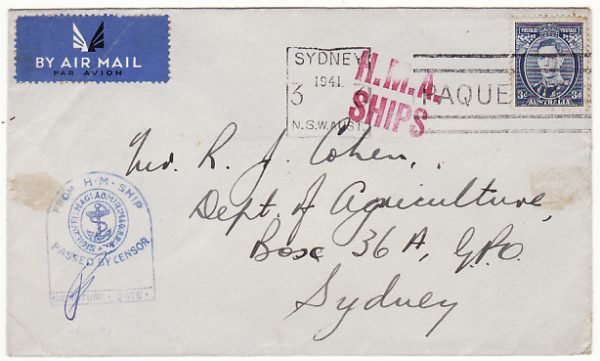 BY AIR MAIL
PAR AVION
SYDNEY
1941
3
N.S.W. AUST.
H.M.A.
SHIPS
PAQUE
POSTAGE POSTAGE
3d 3d
AUSTRALIA
Mr. R. J. Cohen,
Dept. of Agriculture,
Box 36A, G.P.O.
Sydney
FROM H·M·SHIP
PASSED BY CENSOR
SIGNATURE · DATE ·